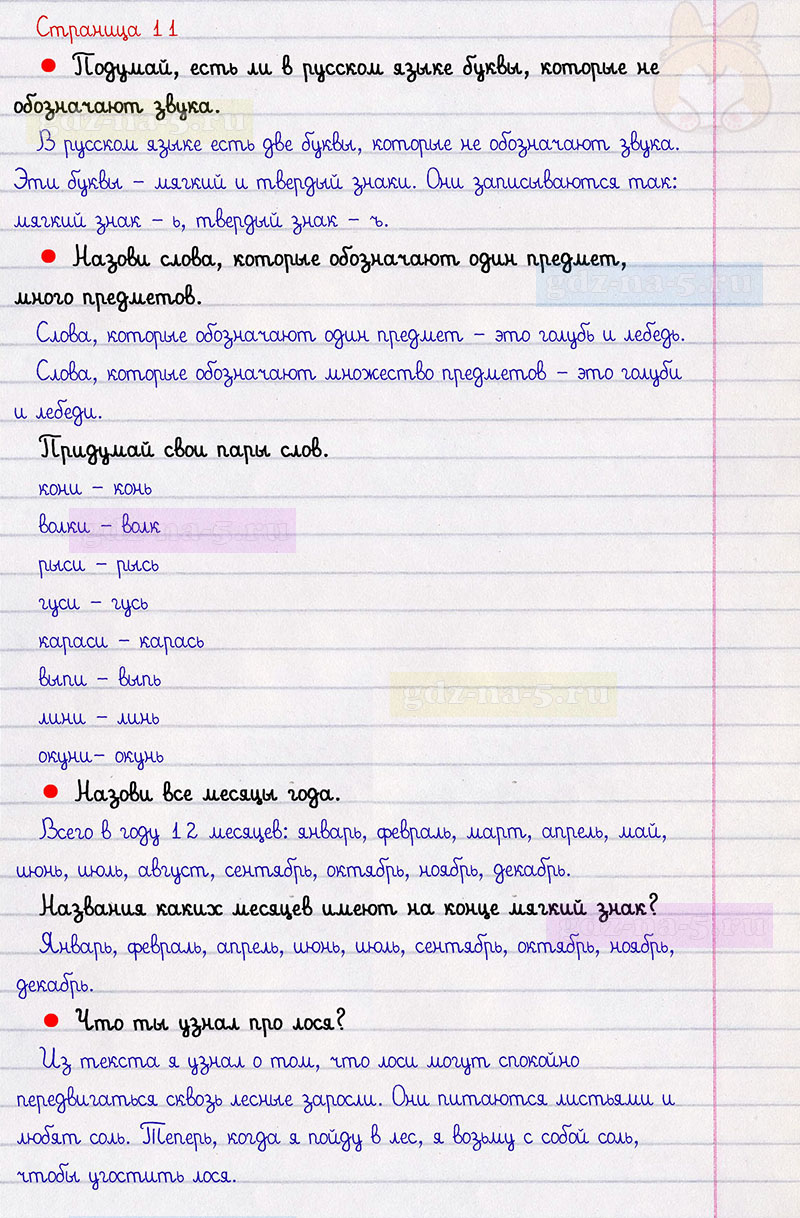 Страница 11
● Подумай, есть ли в русском языке буквы, которые не
обозначают звука.
gdz-na-5.ru
В русском языке есть две буквы, которые не обозначают звука.
Эти буквы – мягкий и твердый знаки. Они записываются так:
мягкий знак – ь, твердый знак – ъ.
● Назови слова, которые обозначают один предмет,
gdz-na-5.ru
много предметов.
Слова, которые обозначают один предмет – это голубь и лебедь.
Слова, которые обозначают множество предметов – это голуби
и лебеди.
Придумай свои пары слов.
кони – конь
волки – волк
gdz-na-5.ru
рыси – рысь
гуси – гусь
караси – карась
выпи – выпь
gdz-na-5.ru
лини – линь
окуни– окунь
● Назови все месяцы года.
Всего в году 12 месяцев: январь, февраль, март, апрель, май,
июнь, июль, август, сентябрь, октябрь, ноябрь, декабрь.
Названия каких месяцев имеют на конце мягкий знак?
gdz-na-5.ru
Январь, февраль, апрель, июнь, июль, сентябрь, октябрь, ноябрь,
декабрь.
● Что ты узнал про лося?
Из текста я узнал о том, что лоси могут спокойно
передвигаться сквозь лесные заросли. Они питаются листьями и
любят соль. Теперь, когда я пойду в лес, я возьму с собой соль,
чтобы угостить лося.